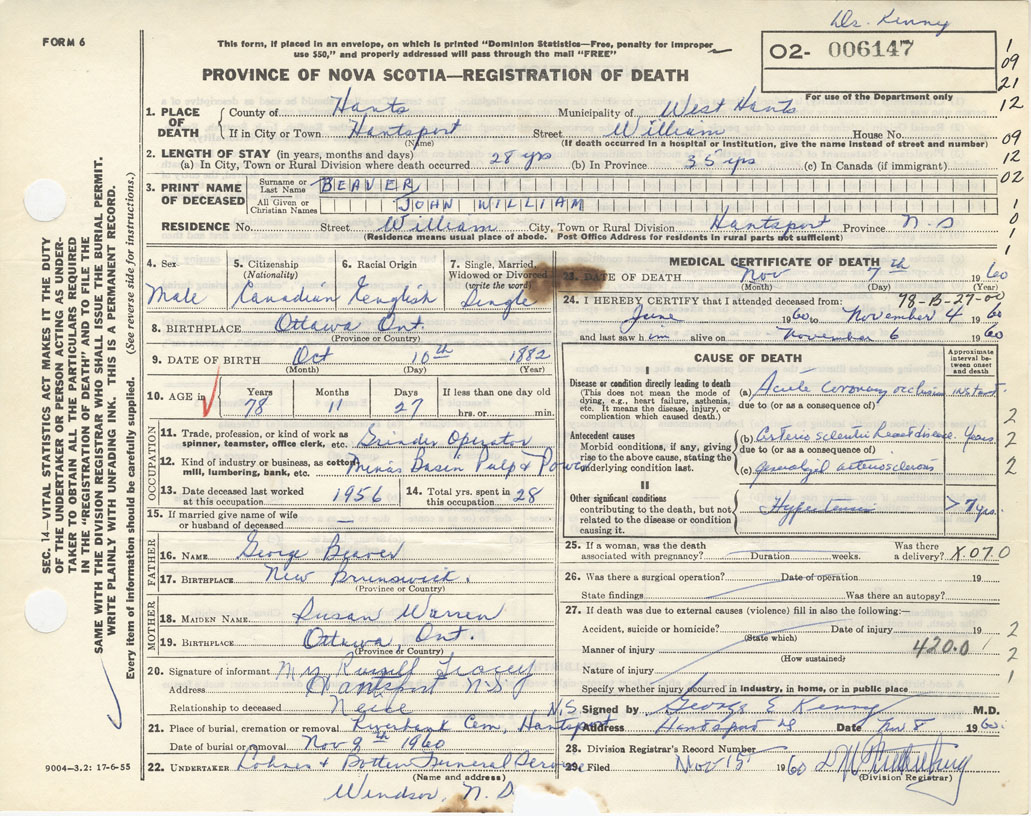 Dr. Kenny
FORM 6
This form, if placed in an envelope, on which is printed "Dominion Statistics—Free, penalty for improper
use $50," and properly addressed will pass through the mail "FREE"
02- 006147
For use of the Department only
PROVINCE OF NOVA SCOTIA—REGISTRATION OF DEATH
1
09
21
12
09
12
02
1
0
1
1. PLACE OF DEATH County of Hants Municipality of West Hants
If in City or Town Hantsport Street William House No.
(Name) (If death occurred in a hospital or institution, give the name instead of street and number)
2. LENGTH OF STAY (in years, months and days)
(a) In City, Town or Rural Division where death occurred 28 yrs (b) In Province 35 yrs (c) In Canada (if immigrant)
3. PRINT NAME OF DECEASED Surname or Last Name BEAVER
All Given or Christian Names JOHN WILLIAM
RESIDENCE No. Street William City, Town or Rural Division Hantsport Province N.S
(Residence means usual place of abode. Post Office Address for residents in rural parts not sufficient)
4. Sex Male
5. Citizenship (Nationality) Canadian
6. Racial Origin English
7. Single, Married, Widowed or Divorced (write the word) Single
8. BIRTHPLACE Ottawa Ont.
(Province or Country)
9. DATE OF BIRTH Oct 10th 1882
(Month) (Day) (Year)
10. AGE in Years 78 Months 11 Days 27 If less than one day
hrs. or min.
OCCUPATION
11. Trade, profession, or kind of work as spinner, teamster, office clerk, etc. Grinder Operator
12. Kind of industry or business, as cotton mill, lumbering, bank, etc. Minas Basin Pulp & Power
13. Date deceased last worked at this occupation 1956
14. Total yrs. spent in this occupation 28
15. If married give name of wife or husband of deceased —
FATHER
16. NAME George Beaver
17. BIRTHPLACE New Brunswick.
(Province or Country)
MOTHER
18. MAIDEN NAME Susan Warren
19. BIRTHPLACE Ottawa, Ont.
(Province or Country)
20. Signature of informant Mrs Russell Tracey
Address Hantsport N.S
Relationship to deceased Neice
21. Place of burial, cremation or removal Riverbank Cem, Hantsport N.S
Date of burial or removal Nov 9th 1960
22. UNDERTAKER Cohnes & Botten Funeral Service
(Name and address)
Windsor, N.S
MEDICAL CERTIFICATE OF DEATH
23. DATE OF DEATH Nov 7th 1960
(Month) (Day) (Year)
24. I HEREBY CERTIFY that I attended deceased from: 78-B-27-00
June 1960 to November 4 1960
and last saw him alive on November 6 1960
CAUSE OF DEATH
Approximate interval between onset and death
I
Disease or condition directly leading to death
(This does not mean the mode of dying, e.g., heart failure, asthenia, etc. It means the disease, injury, or complication which caused death.)
(a) Acute coronary occlusion instant
due to (or as a consequence of)
Antecedent causes
Morbid conditions, if any, giving rise to the above cause, stating the underlying condition last.
(b) Arterio sclerotic Heart disease Years
due to (or as a consequence of)
(c) generalized arteriosclerosis
II
Other significant conditions
contributing to the death, but not related to the disease or condition causing it.
Hypertension >7 yrs.
2
2
2
25. If a woman, was the death associated with pregnancy? Duration weeks. Was there a delivery? X.07.0
26. Was there a surgical operation? Date of operation 19
State findings Was there an autopsy?
27. If death was due to external causes (violence) fill in also the following:—
Accident, suicide or homicide? Date of injury 19
(State which)
Manner of injury 420.0
(How sustained)
Nature of injury
Specify whether injury occurred in industry, in home, or in public place
2
2
1
Signed by George E Kenny M.D.
Address Hantsport NS Date Nov 8 1960.
28. Division Registrar's Record Number
29. Filed Nov 15 1960
(Division Registrar)
SEC. 14—VITAL STATISTICS ACT MAKES IT THE DUTY
OF THE UNDERTAKER OR PERSON ACTING AS UNDER-
TAKER TO OBTAIN ALL THE PARTICULARS REQUIRED
IN THE "REGISTRATION OF DEATH" AND TO FILE THE
SAME WITH THE DIVISION REGISTRAR WHO SHALL ISSUE THE BURIAL PERMIT.
WRITE PLAINLY WITH UNFADING INK. THIS IS A PERMANENT RECORD.
Every item of information should be carefully supplied. (See reverse side for instructions.)
9004—3.2: 17-6-55